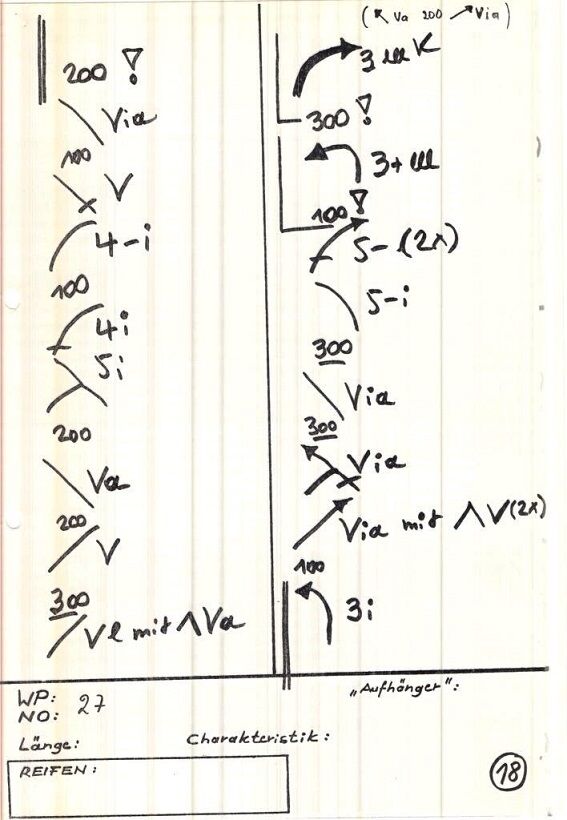 200 !
Via
100
V
4-i
100
4i
5i
200
Va
200
V
300
Vl mit ΛVa
(↖ Va 200 ↗ Via)
3lllK
300 !
3+lll
100 !
5-l(2x)
5-i
300
Via
300
Via
Via mit ΛV(2x)
100
3i
WP:
NO: 27
"Aufhänger":
Länge:
Charakteristik:
REIFEN:
18